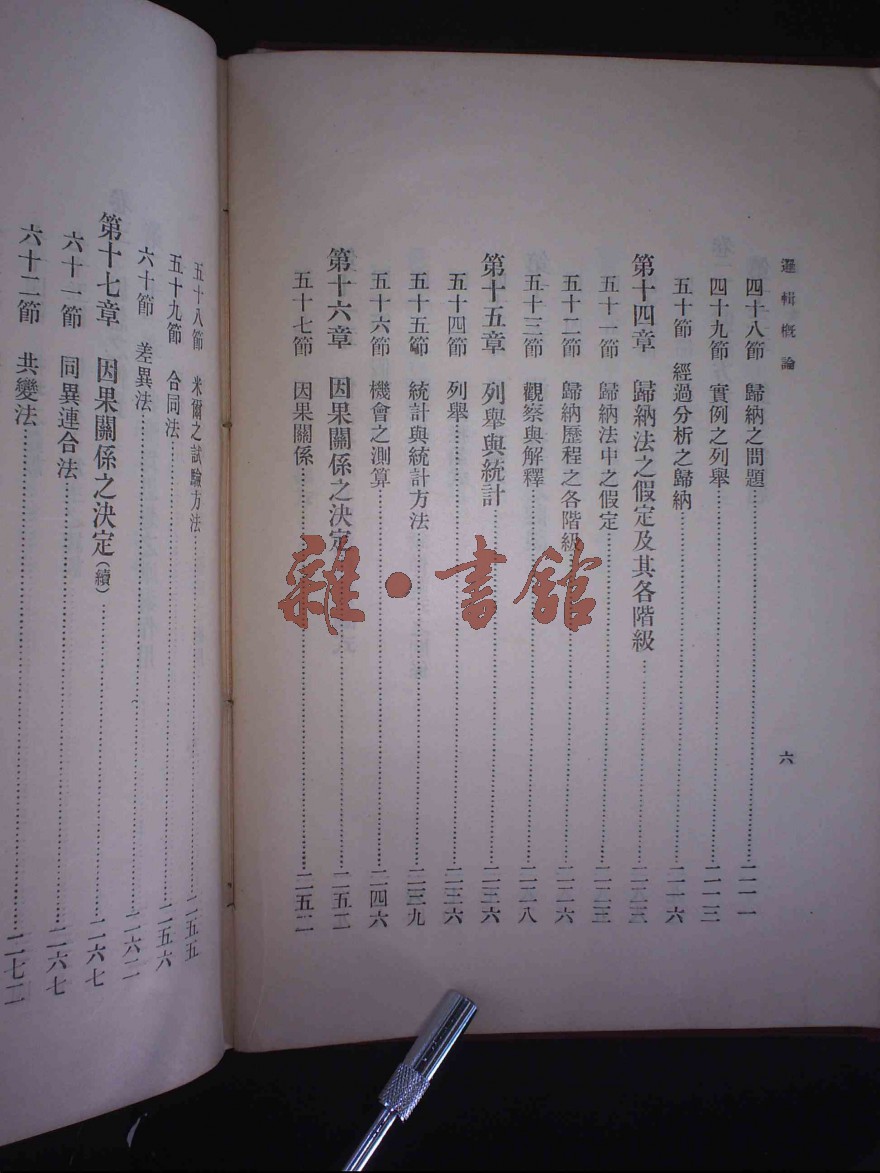 邏輯概論
六
四十八節　歸納之問題……二一一
四十九節　實例之列舉……二一三
五十節　經過分析之歸納……二一六
第十四章　歸納法之假定及其各階級……二二三
五十一節　歸納法中之假定……二二三
五十二節　歸納歷程之各階級……二二六
五十三節　觀察與解釋……二二八
第十五章　列舉與統計……二三六
五十四節　列舉……二三六
五十五節　統計與統計方法……二三九
五十六節　機會之測算……二四六
第十六章　因果關係之決定……二五二
五十七節　因果關係……二五二
五十八節　米爾之試驗方法……二五五
五十九節　合同法……二五六
六十節　差異法……二六二
第十七章　因果關係之決定（續）……二六七
六十一節　同異連合法……二六七
六十二節　共變法……二七二
雜·書館